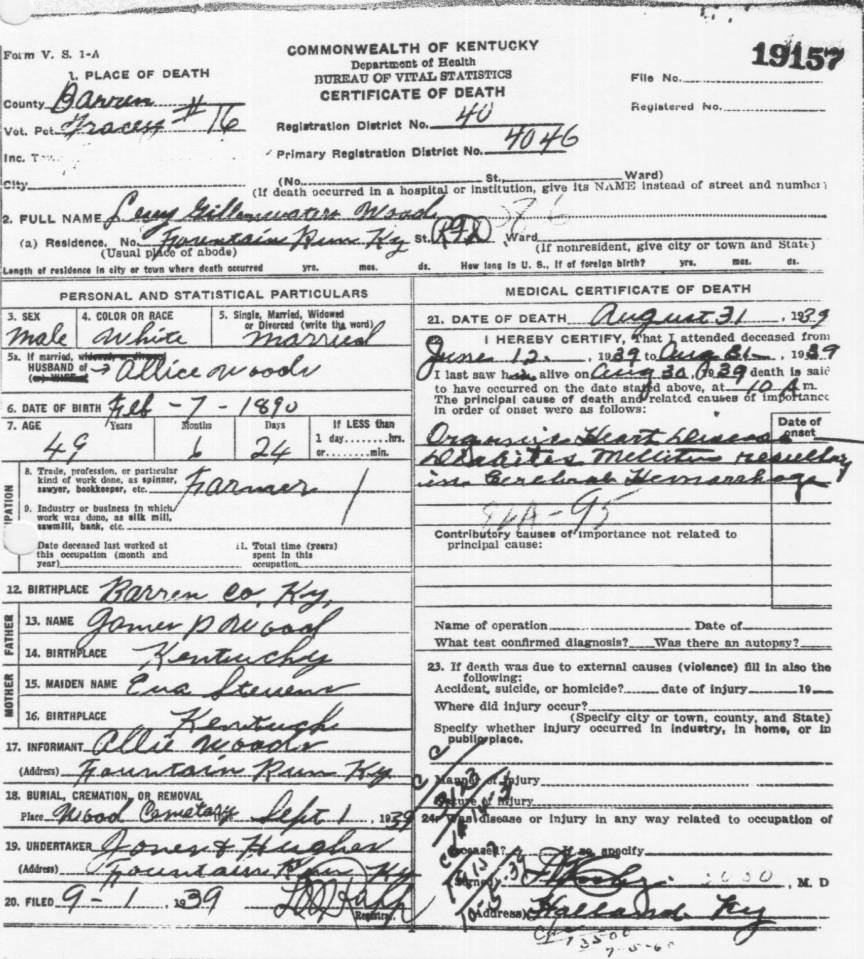 Form V. S. 1-A
COMMONWEALTH OF KENTUCKY
Department of Health
BUREAU OF VITAL STATISTICS
CERTIFICATE OF DEATH
19157
File No.
Registered No.
1. PLACE OF DEATH
County Barren
Vot. Pct. Tracey # 16
Inc. T
City
Registration District No. 40
Primary Registration District No. 4046
(No. St., Ward)
(If death occurred in a hospital or institution, give its NAME instead of street and number)
2. FULL NAME Gillenwaters Wood
(a) Residence. No. Fountain Run Ky St. RFD Ward
(Usual place of abode) (If nonresident, give city or town and State)
Length of residence in city or town where death occurred yrs. mos. ds. How long in U. S., if of foreign birth? yrs. mos. ds.
PERSONAL AND STATISTICAL PARTICULARS
3. SEX 4. COLOR OR RACE 5. Single, Married, Widowed or Divorced (write the word)
male white married
5a. If married, widowed or divorced
HUSBAND of Allice Woods
(or) WIFE
6. DATE OF BIRTH Feb - 7 - 1890
7. AGE Years Months Days If LESS than
49 6 24 1 day........hrs.
or........min.
8. Trade, profession, or particular
kind of work done, as spinner,
sawyer, bookkeeper, etc. Farmer
9. Industry or business in which
work was done, as silk mill,
sawmill, bank, etc.
Date deceased last worked at
this occupation (month and
year)
11. Total time (years)
spent in this
occupation
12. BIRTHPLACE Barren Co, Ky,
FATHER
13. NAME D Wood
14. BIRTHPLACE Kentucky
MOTHER
15. MAIDEN NAME Eva Stevens
16. BIRTHPLACE Kentucky
17. INFORMANT Allie Woods
(Address) Fountain Run Ky
18. BURIAL, CREMATION, OR REMOVAL
Place Wood Cemetary Sept 1, 1939
19. UNDERTAKER Jones & Hughes
(Address) Fountain Run Ky
20. FILED 9-1, 1939
Registrar.
MEDICAL CERTIFICATE OF DEATH
21. DATE OF DEATH August 31, 1939
I HEREBY CERTIFY, That I attended deceased from
June 12, 1939 to Aug 31, 1939
I last saw him alive on Aug 30, 1939 death is said
to have occurred on the date stated above, at 10 A m.
The principal cause of death and related causes of importance
in order of onset were as follows:
Date of
onset
Organic Heart Disease
Diabites Mellitus resulting
in Cerebral Hemorrhage
Contributory causes of importance not related to
principal cause:
Name of operation Date of
What test confirmed diagnosis? Was there an autopsy?
23. If death was due to external causes (violence) fill in also the
following:
Accident, suicide, or homicide? date of injury 19
Where did injury occur?
(Specify city or town, county, and State)
Specify whether injury occurred in industry, in home, or in
public place.
Manner of Injury
Nature of Injury
24. Was disease or injury in any way related to occupation of
deceased? If so, specify
(Signed) , M. D
(Address) Holland Ky